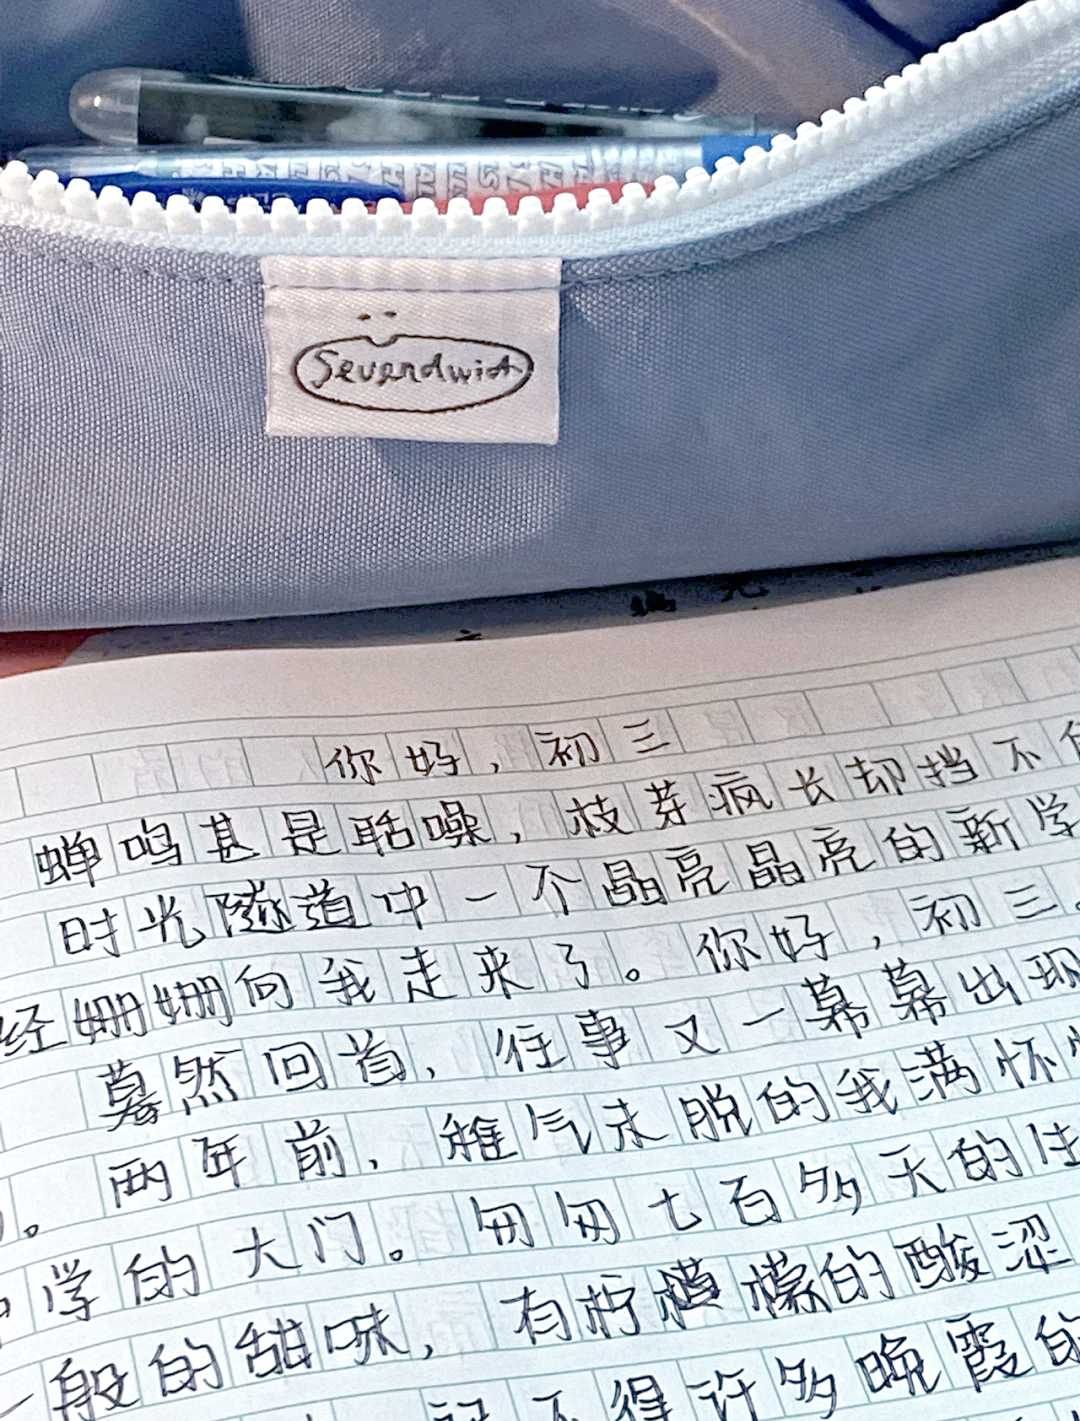 Sevendwid
你好，初三
蝉鸣甚是聒噪，枝芽疯长却挡不住
时光隧道中一个晶亮晶亮的新学
经姗姗向我走来了。你好，初三
蓦然回首，往事又一幕幕出现
两年前，稚气未脱的我满怀
。学的大门。匆匆七百多天的
一般的甜味，有柠檬的酸涩
记不得许多晚霞的